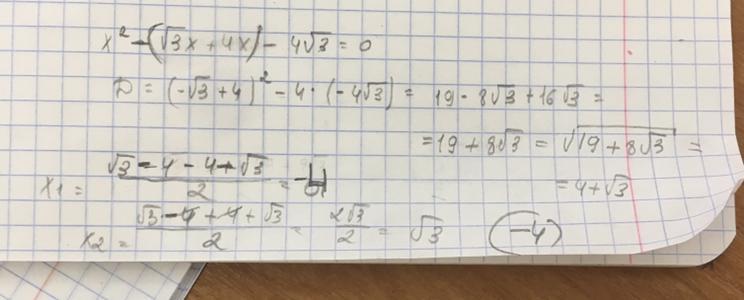 x² - (√3x + 4x) - 4√3 = 0
D = (-√3 + 4)² - 4 · (-4√3) = 19 - 8√3 + 16√3 =
= 19 + 8√3 = √19 + 8√3 =
= 4 + √3
x1 = √3 - 4 - 4 + √3 / 2 = -4
x2 = √3 - 4 + 4 + √3 / 2 = 2√3 / 2 = √3 (-4)